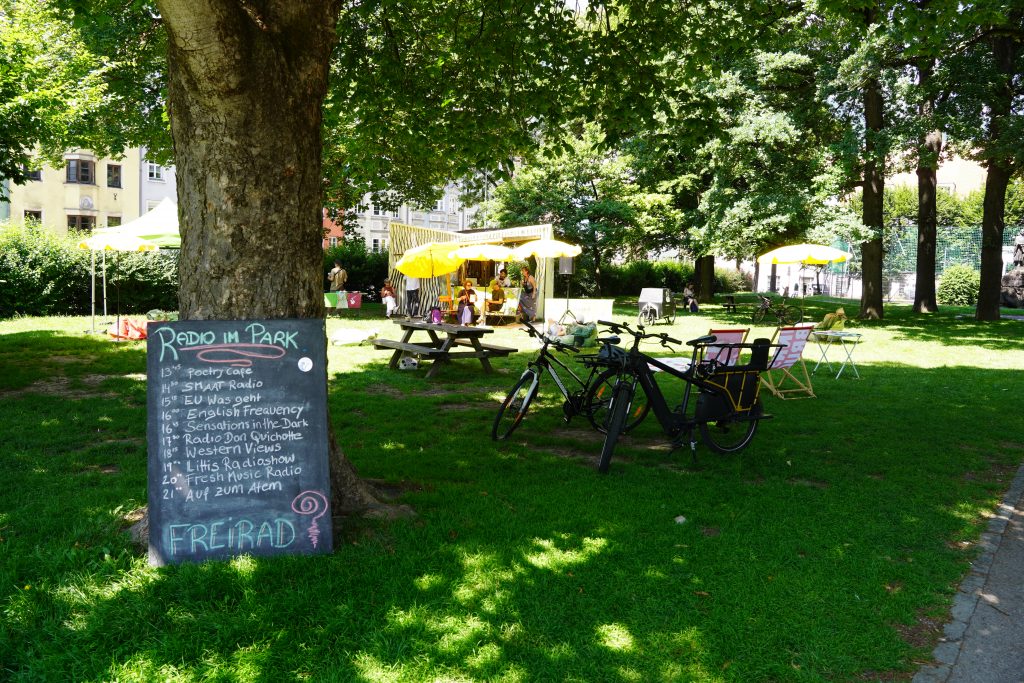 RADIO IM PARK
13⁴⁵ Poetry Cafe
14³⁰ SMAAT Radio
15 EU Was geht
16⁰⁰ English Frequency
16 Sensations in the Dark
17³⁰ Radio Don Quichotte
18 Western Views
19 Littis Radioshow
20 Fresh Music Radio
21 Auf zum Atem
FREIRAD